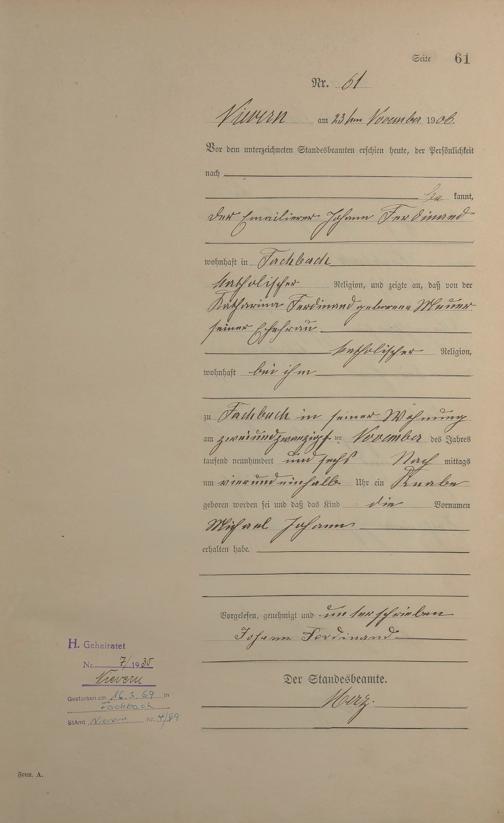 Seite 61
Nr. 61
Nievern am 23ten November 1906.
Vor dem unterzeichneten Standesbeamten erschien heute, der Persönlichkeit
nach
be kannt,
der Emailierer Johann Ferdinand
wohnhaft in Fachbach
katholischer Religion, und zeigte an, daß von der
Katharina Ferdinand geborene Meuer
seiner Ehefrau
katholischer Religion,
wohnhaft bei ihm
zu Fachbach in seiner Wohnung
am zweiundzwanzigsten November des Jahres
tausend neunhundert und sechs Nach mittags
um vierundeinhalb Uhr ein Knabe
geboren worden sei und daß das Kind die Vornamen
Michael Johann
erhalten habe.
Vorgelesen, genehmigt und unterschrieben
Johann Ferdinand
Der Standesbeamte.
Merz.
H. Geheiratet
Nr. 7/1935
Nievern
Gestorben am 16.3.69 in
Fachbach
StAmt Nievern Nr. 4/69
Form. A.